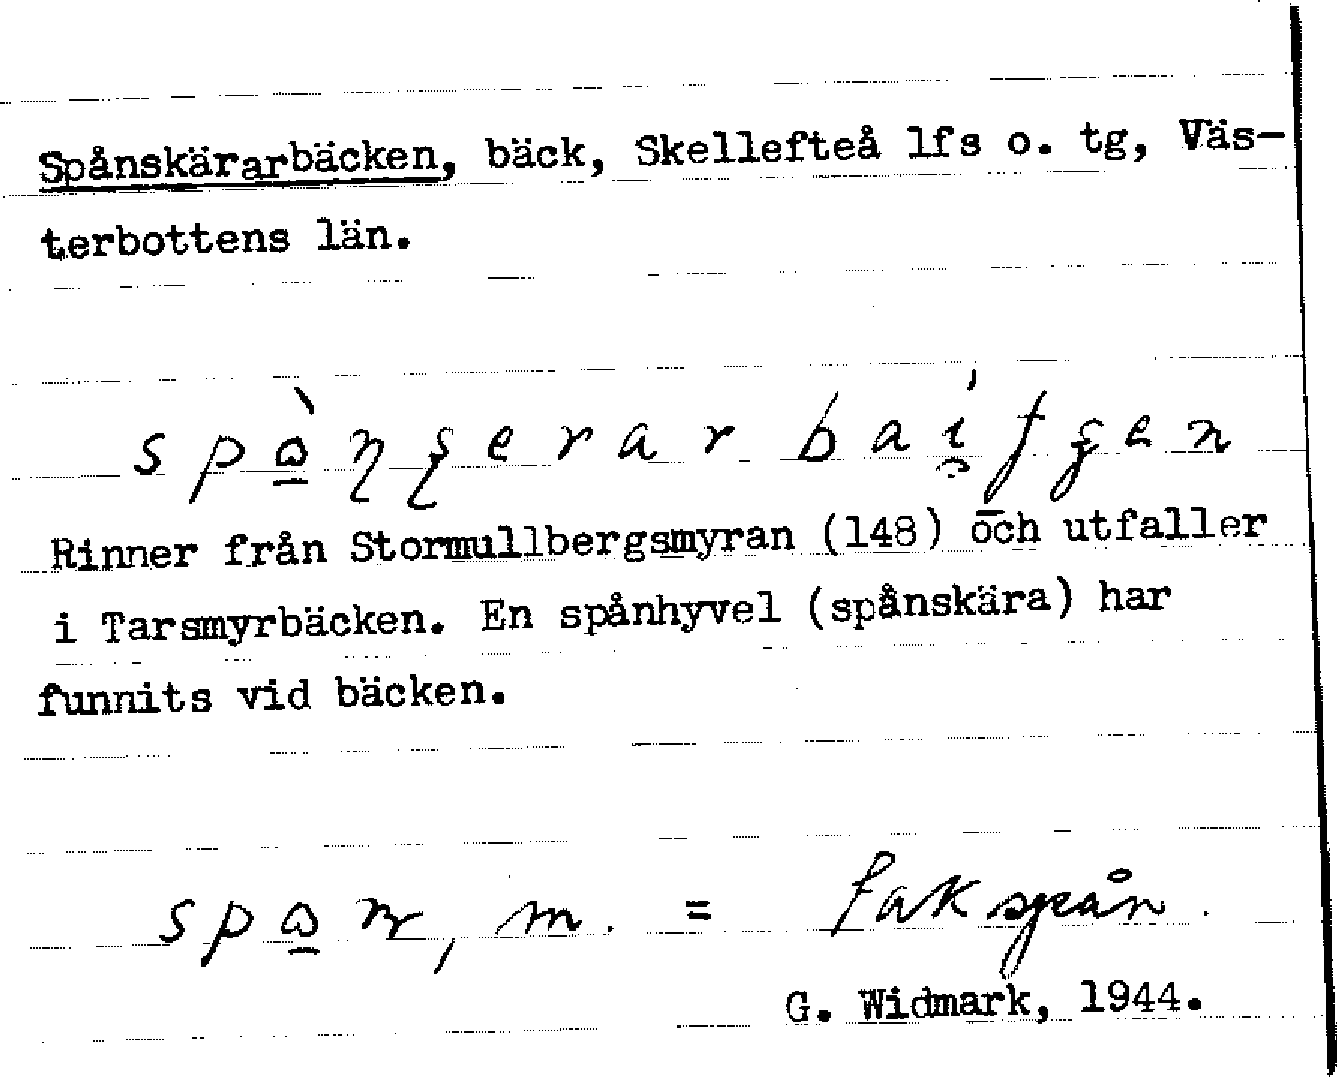 Spånskärarbäcken, bäck, Skellefteå lfs o. tg, Väs-
terbottens län.
Rinner från Stormullbergsmyran (148) och utfaller
i Tarsmyrbäcken. En spånhyvel (spånskära) har
funnits vid bäcken.
m. = takspån.
G. Widmark, 1944.